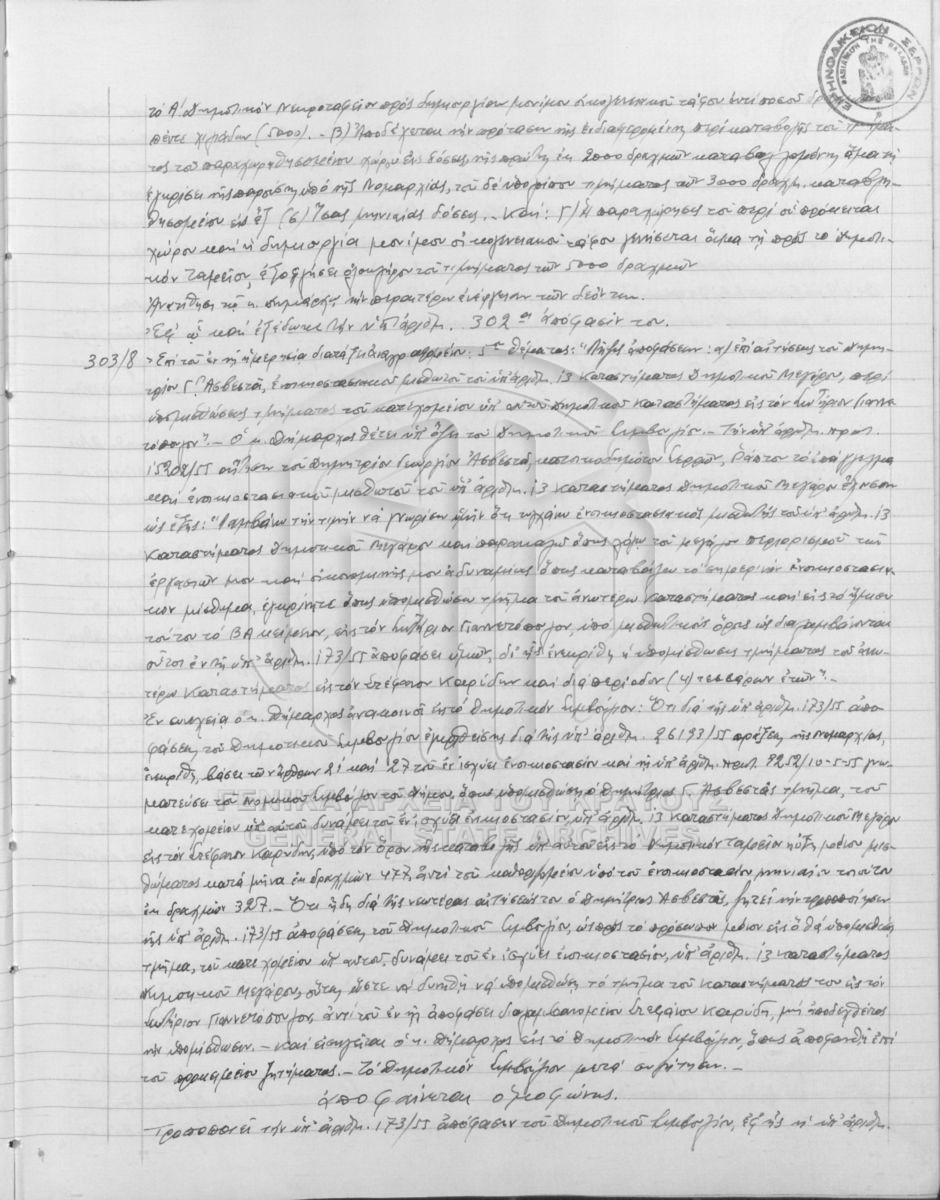 ΕΙΡΗΝΟΔΙΚΕΙΟΝ ΣΕΡΡΩΝ
ΒΑΣΙΛΕΙΟΝ ΤΗΣ ΕΛΛΑΔΟΣ
τὸ Α΄ Δημοτικὸν Νεκροταφεῖον πρὸς δημιουργίαν μονίμου οἰκογενειακοῦ τάφου ἀντὶ ποσοῦ
πέντε χιλιάδων (5000). - Β) Ἀποδέχεται τὴν πρότασιν τῆς ἐνδιαφερομένης περὶ καταβολῆς τοῦ
τος τοῦ παραχωρηθησομένου χώρου εἰς δόσεις, τῆς πρώτης ἐκ 2000 δραχμῶν καταβαλλομένης ἅμα τῇ
ἐγκρίσει τῆς παρούσης ὑπὸ τῆς Νομαρχίας, τοῦ δὲ ὑπολοίπου τιμήματος τῶν 3000 δραχμ. καταβλη-
θησομένου εἰς ἓξ (6) ἴσας μηνιαίας δόσεις. - Καὶ: Γ) Ἡ παραχώρησις τοῦ περὶ οὗ πρόκειται
χώρου καὶ ἡ δημιουργία μονίμου οἰκογενειακοῦ τάφου γενήσεται ἅμα τῇ πρὸς τὸ Δημοτι-
κὸν Ταμεῖον, ἐξοφλήσει ὁλοκλήρου τοῦ τιμήματος τῶν 5000 δραχμῶν
Ἀνατίθησι τῷ κ. Δημάρχῳ τὴν περαιτέρω ἐνέργειαν τῶν δεόντων.
Ἐφ' ᾧ καὶ ἐξέδωκε τὴν ὑπ' ἀριθμ. 302αν ἀπόφασίν του.
303/8 Ἐπὶ τοῦ ἐν τῇ ἡμερησίᾳ διατάξει ἀναγραφομένου: 5ου θέματος: "Λῆψις ἀποφάσεων: α) ἐπὶ αἰτήσεως τοῦ Δημη-
τρίου Γ. Ἀσβεστᾶ, ἐνοικιοστασιακοῦ μισθωτοῦ τοῦ ὑπ' ἀριθμ. 13 Καταστήματος Δημοτικοῦ Μεγάρου, περὶ
ὑπομισθώσεως τμήματος τοῦ κατεχομένου ὑπ' αὐτοῦ Δημοτικοῦ Καταστήματος εἰς τὸν Σωτήριον Γιαννε-
τόπουλον". - Ὁ κ. Δήμαρχος θέτει ὑπ' ὄψει τοῦ Δημοτικοῦ Συμβουλίου. - Τὴν ὑπ' ἀριθμ. πρωτ.
15208/55 αἴτησιν τοῦ Δημητρίου Γεωργίου Ἀσβεστᾶ, κατοίκου δημότου Σερρῶν, ῥάπτου τὸ ἐπάγγελμα
καὶ ἐνοικιοστασιακοῦ μισθωτοῦ τοῦ ὑπ' ἀριθμ. 13 Καταστήματος Δημοτικοῦ Μεγάρου ἔχουσαν
ὡς ἑξῆς: "Λαμβάνω τὴν τιμὴν νὰ γνωρίσω ὑμῖν ὅτι τυγχάνω ἐνοικιοστασιακὸς μισθωτὴς τοῦ ὑπ' ἀριθμ. 13
Καταστήματος Δημοτικοῦ Μεγάρου καὶ παρακαλῶ ὅπως λόγῳ τοῦ μεγάλου περιορισμοῦ τῶν
ἐργασιῶν μου καὶ οἰκονομικῆς μου ἀδυναμίας ὅπως καταβάλω τὸ σημερινὸν ἐνοικιοστασια-
κὸν μίσθωμα, ἐγκρίνητε ὅπως ὑπομισθώσω τμῆμα τοῦ ἀνωτέρω Καταστήματος καὶ εἰς τὸ ἥμισυ
τούτου τὸ ΒΑ κείμενον, εἰς τὸν Σωτήριον Γιαννετόπουλον, ὑπὸ μισθωτικοὺς ὅρους ὡς διαλαμβάνονται
οὗτοι ἐν τῇ ὑπ' ἀριθμ. 173/55 ἀποφάσει ὑμῶν, δι' ἧς ἐνεκρίθη ἡ ὑπομίσθωσις τμήματος τοῦ ἀνω-
τέρω Καταστήματος εἰς τὸν Στέφανον Καρύδην καὶ διὰ περίοδον (4) τεσσάρων ἐτῶν". -
Ἐν συνεχείᾳ ὁ κ. Δήμαρχος ἀνακοινοῖ εἰς τὸ Δημοτικὸν Συμβούλιον: Ὅτι διὰ τῆς ὑπ' ἀριθμ. 173/55 ἀπο-
φάσεως τοῦ Δημοτικοῦ Συμβουλίου ἐγκριθείσης διὰ τῆς ὑπ' ἀριθμ. 26193/55 πράξεως τῆς Νομαρχίας,
ἐνεκρίθη, βάσει τῶν ἄρθρων 21 καὶ 27 τοῦ ἐν ἰσχύει ἐνοικιοστασίου καὶ τῆς ὑπ' ἀριθμ. πρωτ. 9252/10-5-55 γνω-
ματεύσεως τοῦ Νομικοῦ Συμβούλου τοῦ Δήμου, ὅπως ὑπομισθώσῃ ὁ Δημήτριος Γ. Ἀσβεστᾶς τμῆμα, τοῦ
κατεχομένου ὑπ' αὐτοῦ δυνάμει τοῦ ἐν ἰσχύει ἐνοικιοστασίου ὑπ' ἀριθμ. 13 Καταστήματος Δημοτικοῦ Μεγάρου
εἰς τὸν Στέφανον Καρύδην, ὑπὸ τὸν ὅρον τῆς καταβολῆς ὑπ' αὐτοῦ εἰς τὸ Δημοτικὸν Ταμεῖον ηὐξημένου μισ-
θώματος κατὰ μῆνα ἐκ δραχμῶν 477, ἀντὶ τοῦ καθοριζομένου ὑπὸ τοῦ ἐνοικιοστασίου μηνιαίου τοιούτου
ἐκ δραχμῶν 327. - Ὅτι ἤδη διὰ τῆς νεωτέρας αἰτήσεώς του ὁ Δημήτριος Ἀσβεστᾶς, ζητεῖ τὴν τροποποίησιν
τῆς ὑπ' ἀριθμ. 173/55 ἀποφάσεως τοῦ Δημοτικοῦ Συμβουλίου, ὡς πρὸς τὸ πρόσωπον μόνον εἰς ὃ θὰ ὑπομισθωθῇ
τμῆμα, τοῦ κατεχομένου ὑπ' αὐτοῦ, δυνάμει τοῦ ἐν ἰσχύει ἐνοικιοστασίου, ὑπ' ἀριθμ. 13 Καταστήματος
Δημοτικοῦ Μεγάρου, οὕτως ὥστε νὰ δυνηθῇ νὰ ὑπομισθώσῃ τὸ τμῆμα τοῦ Καταστήματός του εἰς τὸν
Σωτήριον Γιαννετόπουλον, ἀντὶ τοῦ ἐν τῇ ἀποφάσει διαλαμβανομένου Στεφάνου Καρύδη, μὴ ἀποδεχθέντος
τὴν ὑπομίσθωσιν. - Καὶ εἰσηγεῖται ὁ κ. Δήμαρχος εἰς τὸ Δημοτικὸν Συμβούλιον, ὅπως ἀποφανθῇ ἐπὶ
τοῦ προκειμένου ζητήματος. - Τὸ Δημοτικὸν Συμβούλιον μετὰ συζήτησιν. -
ἀποφαίνεται ὁμοφώνως.
Τροποποιεῖ τὴν ὑπ' ἀριθμ. 173/55 ἀπόφασιν τοῦ Δημοτικοῦ Συμβουλίου, ἐφ' ἧς ἡ ὑπ' ἀριθμ.
ΓΕΝΙΚΑ ΑΡΧΕΙΑ ΤΟΥ ΚΡΑΤΟΥΣ
GENERAL STATE ARCHIVES